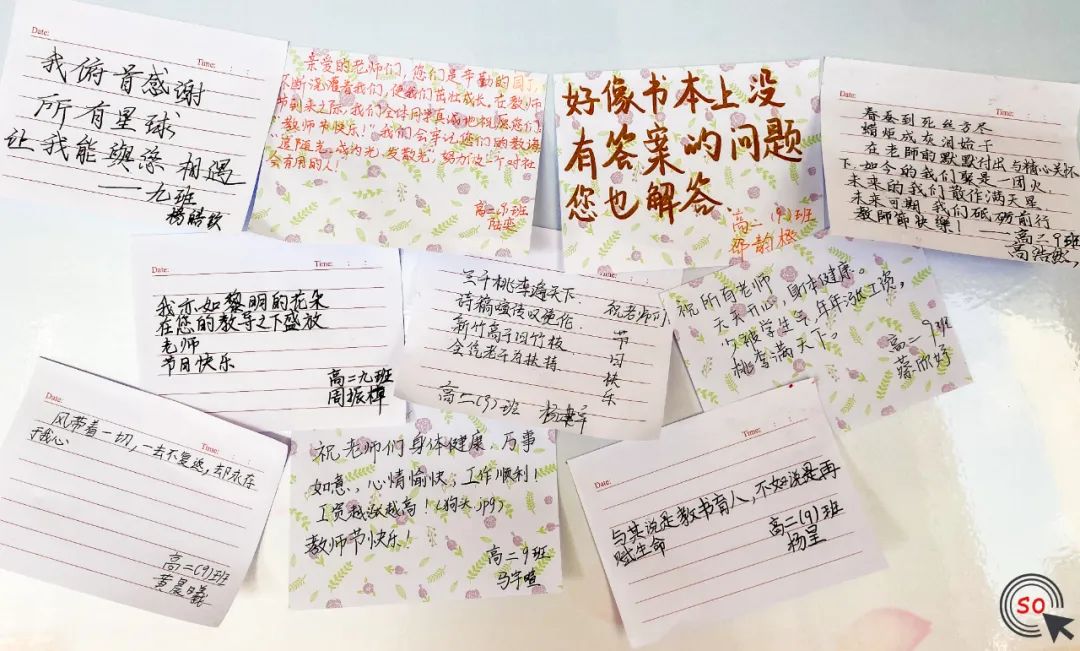 Date:
Time: : :
我俯首感谢
所有星球
让我能与您相遇
——九班
亲爱的老师们，您们是辛勤的园丁，
不断浇灌着我们，使我们茁壮成长，在教师
节到来之际，我们全体同学真诚地祝愿您们，
"教师节快乐！"我们会牢记您们的教诲
追随光，成为光，发散光，努力做一个对社
会有用的人！
高二 班
好像书本上没
有答案的问题
您也解答．
高二（9）班
邵韵
Date:
Time: : :
春蚕到死丝方尽
蜡炬成灰泪始干
在老師的默默付出与精心关怀
下，如今的我们聚是一团火
未来的我们散作满天星
未来可期，我们砥砺前行
教師節快樂！
——高二9班
高浩
Date:
Time: : :
我亦如黎明的花朵
在您的教导之下盛放
老师
节日快乐
高二九班
周振
Date:
Time: : :
三千桃李遍天下
诗稿 传
新竹高于旧竹枝
全凭老干为扶持
祝老师们
节日快乐
高二（9）班 杨
祝所有老师
天天开心，身体健康。
少被学生气，年年涨工资，
桃李满天下。
高二9班
蔡欣妤
Date:
Time: : :
风带着一切，一去不复返，却永在
我心
高二（9）班
黄晨曦
祝老师们身体健康，万事
如意，心情愉快，工作顺利！
工资越涨越高！（狗头.jpg）
教师节快乐！
高二9班
马宇喧
Date:
Time: : :
与其说是教书育人，不如说是再
赋生命
高二（9）班
杨
SO